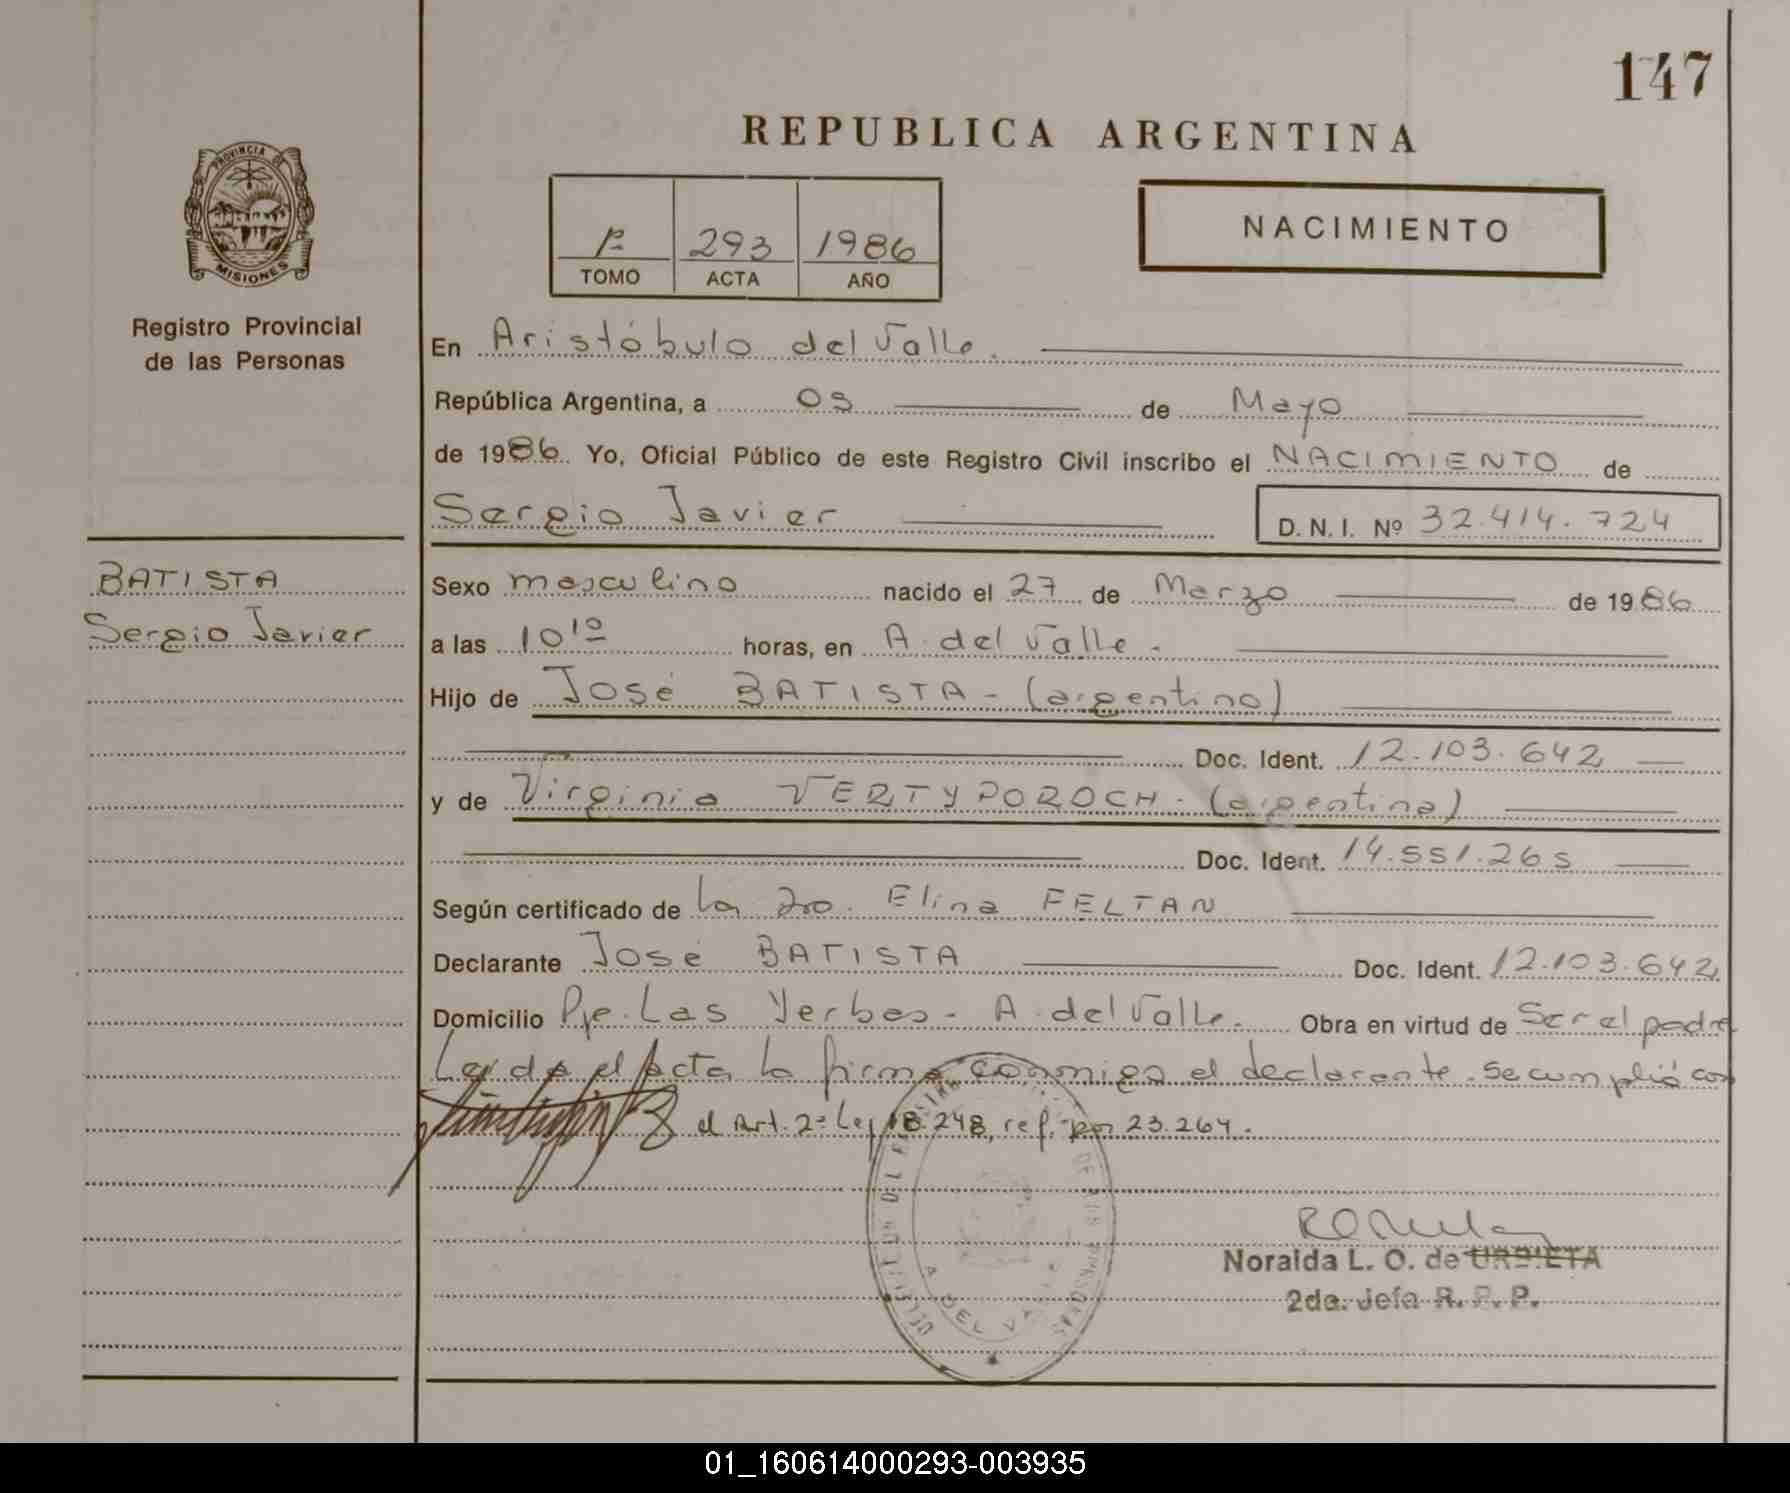 147
REPUBLICA ARGENTINA
PROVINCIA DE
MISIONES
Registro Provincial
de las Personas
293 1986
TOMO ACTA AÑO
NACIMIENTO
En Aristóbulo del Valle.
República Argentina, a 05 de Mayo
de 1986. Yo, Oficial Público de este Registro Civil inscribo el NACIMIENTO de
Sergio Javier D. N. I. Nº 32.414.724
BATISTA
Sergio Javier
Sexo masculino nacido el 27 de Marzo de 1986
a las 10 10 horas, en A. del Valle.
Hijo de José BATISTA - (argentino)
Doc. Ident. 12.103.642
y de Virginia VERTYPOROCH - (argentina)
Doc. Ident. 14.551.265
Según certificado de la Elina FELTAN
Declarante José BATISTA Doc. Ident. 12.103.642
Domicilio Pje. Las Yerbas - A. del Valle. Obra en virtud de Ser el padre
Leída el acta la firma conmigo el declarante. Se cumplió con
el Art. 2º Ley 18.248, ref. por 23.264.
A. DEL VALLE
Noralda L. O. de URBIETA
2da. Jefa R. P. P.
01_160614000293-003935